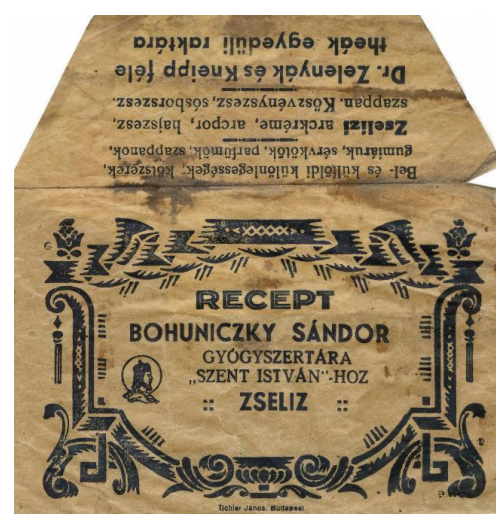 Bel- és külföldi különlegességek, kötszerek,
gumiáruk, sérvkötők, parfümök, szappanok,
Zselizi arckréme, arcpor, hajszesz,
szappan. Köszvényszesz, sósborszesz.
Dr. Zelenyák és Kneipp féle
theák egyedüli raktára
RECEPT
BOHUNICZKY SÁNDOR
GYÓGYSZERTÁRA
„SZENT ISTVÁN"-HOZ
:: ZSELIZ ::
Tichler János, Budapest